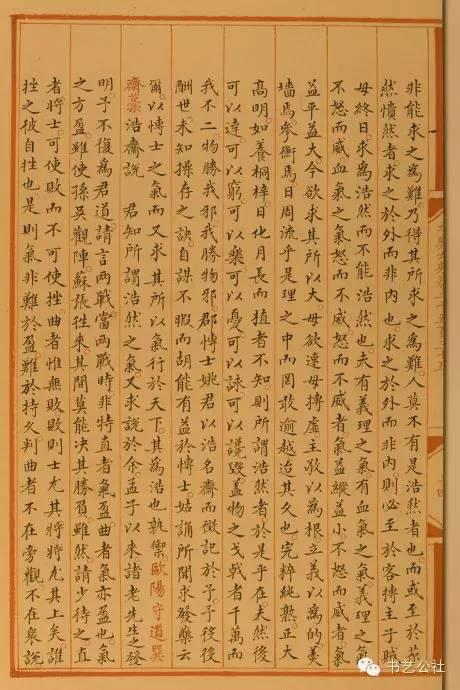 非能求之為難乃得其所求之為難人莫不有是浩然者也而或至於茶
然憒然者求之於外而非内也求之於外而非内則必至於客摶主子賊
母終日求為浩然而不能浩然也夫有義理之氣有血氣之氣義理之氣
不怒而威血氣之氣怒而不威怒而不威者氣益縱益小不怒而威者氣
益平益大今欲求其所以大毋欲速毋摶虛主敬以為根立義以為的羹
墻焉參衡焉日周流乎是理之中而罔敢逾越迨其久也完粹純熟正大
高明如養桐梓日化月長而植者不知則所謂浩然者於是乎在夫然後
可以達可以窮可以樂可以憂可以詠可以蓋物之戈戟者千萬而
我不二物勝我邪我勝物邪郡博士姚君以浩名齋而徵記於予予役役
酬世未知操存之訣自謀不暇而胡能有益於博士姑誦所聞求發藥云
爾以博士之氣而又求其所以氣行於天下其為浩也孰禦歐陽守道巽
齋藁浩齋說 君知所謂浩然之氣又求說於余孟子以來諸老先生之發
明予不復為君道請言兩戰當兩戰時非特直者氣盈曲者氣亦盈也氣
之方盈雖使孫吳觀陣蘇張徃來其間莫能决其勝負雖然請少待之直
者將士可使敗而不可使挫曲者惟無敗敗則士尤其將將尤其上矣誰
挫之彼自挫也是則氣非難於盈難於持久判曲者不在旁觀不在衆說
书艺公社